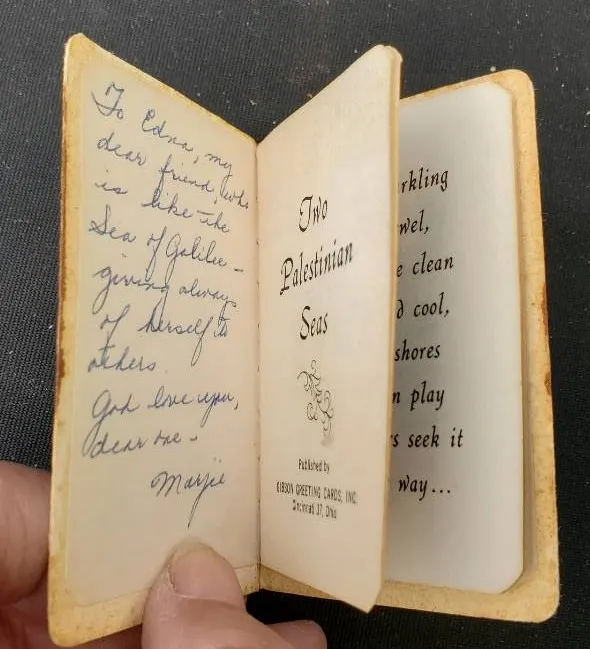 To Edna, my
dear friend, who
is like the
Sea of Galilee -
giving always
of herself to
others.
God love you,
dear one -
Marjie
Two
Palestinian
Seas
Published by
GIBSON GREETING CARDS, INC.
Cincinnati 37, Ohio
rkling
wel,
e clean
d cool,
shores
n play
s seek it
way...